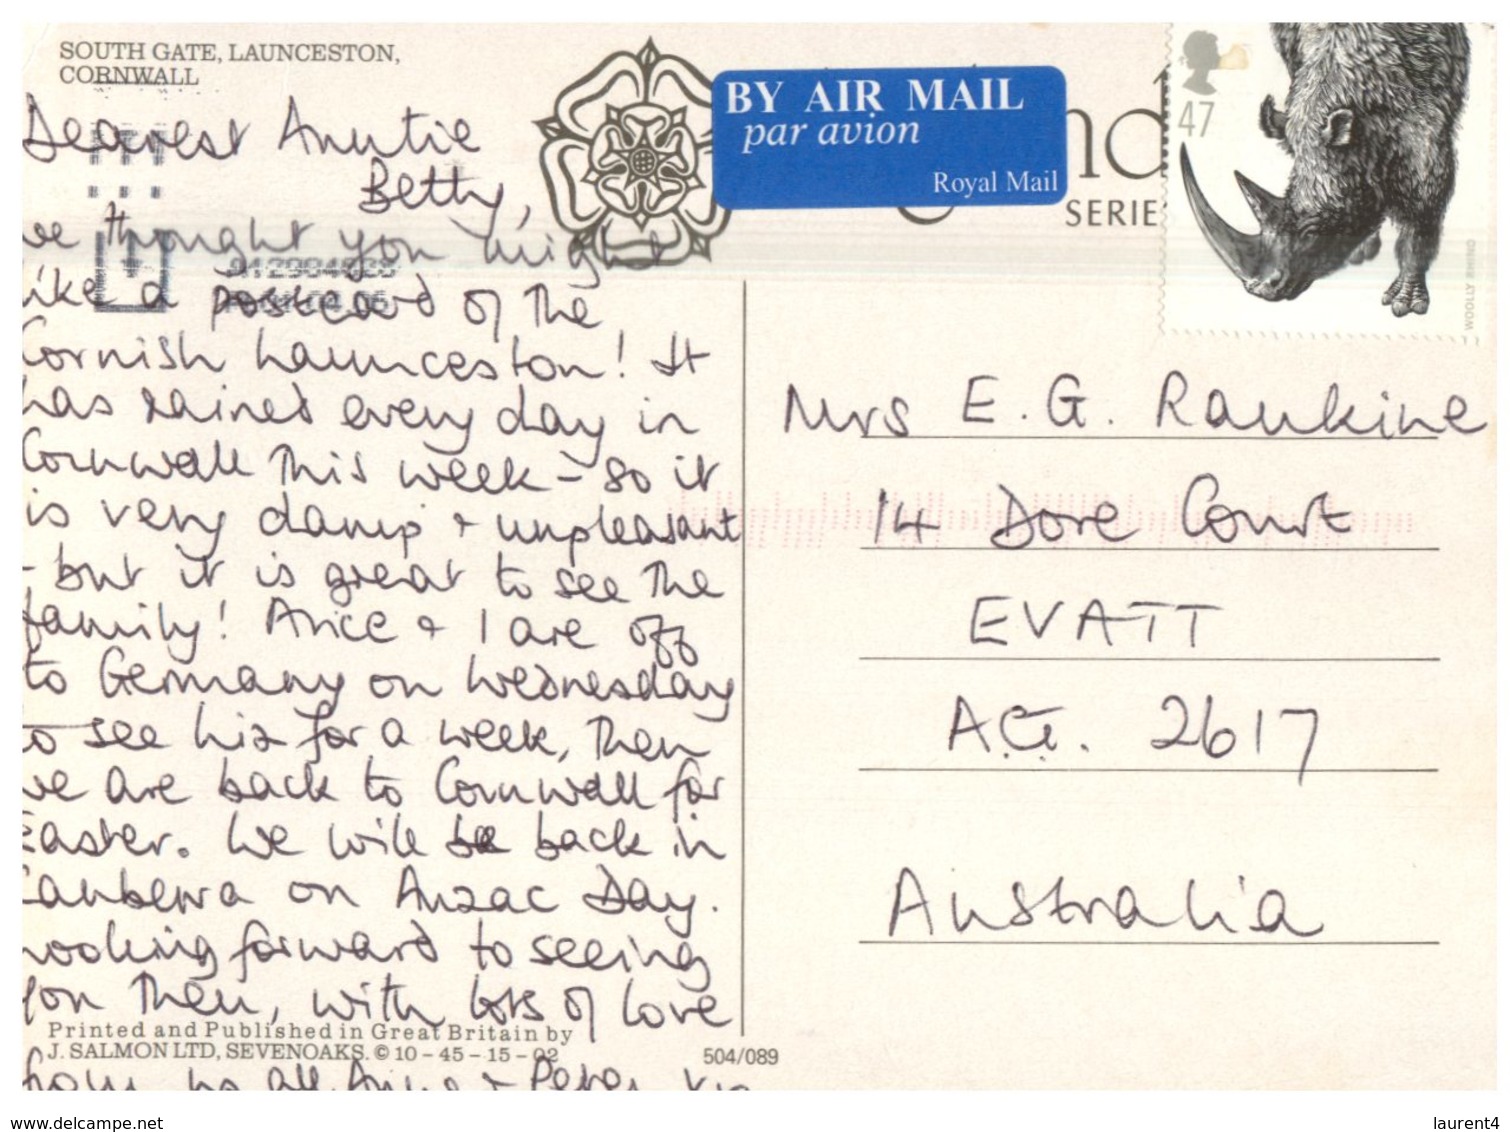 SOUTH GATE, LAUNCESTON,
CORNWALL
Dearest Auntie
Betty,
we thought you might
like a postcard of the
Cornish Launceston! It
has rained every day in
Cornwall this week - so it
is very damp + unpleasant
- but it is great to see the
family! + I are off
to Germany on Wednesday
to see Liz for a week, then
we are back to Cornwall for
Easter. We will be back in
Canberra on Anzac Day.
Looking forward to seeing
you then, with lots of love
from us all, + Peter
Printed and Published in Great Britain by
J. SALMON LTD, SEVENOAKS. © 10 - 45 - 15 - 02
504/089
BY AIR MAIL
par avion
Royal Mail
SERIE
47
WOOLLY RHINO
Mrs E. G. Rankine
14 Dore Court
EVATT
A.C.T. 2617
Australia
www.delcampe.net
laurent4